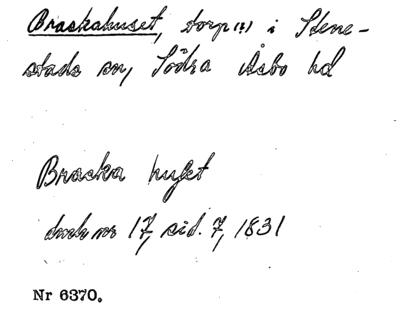 Brackahuset, torp(?) i Stene-
stads sn, Södra Åsbo hd
Bracka huset
dmk nr 17, sid. 7, 1831
Nr 6370.